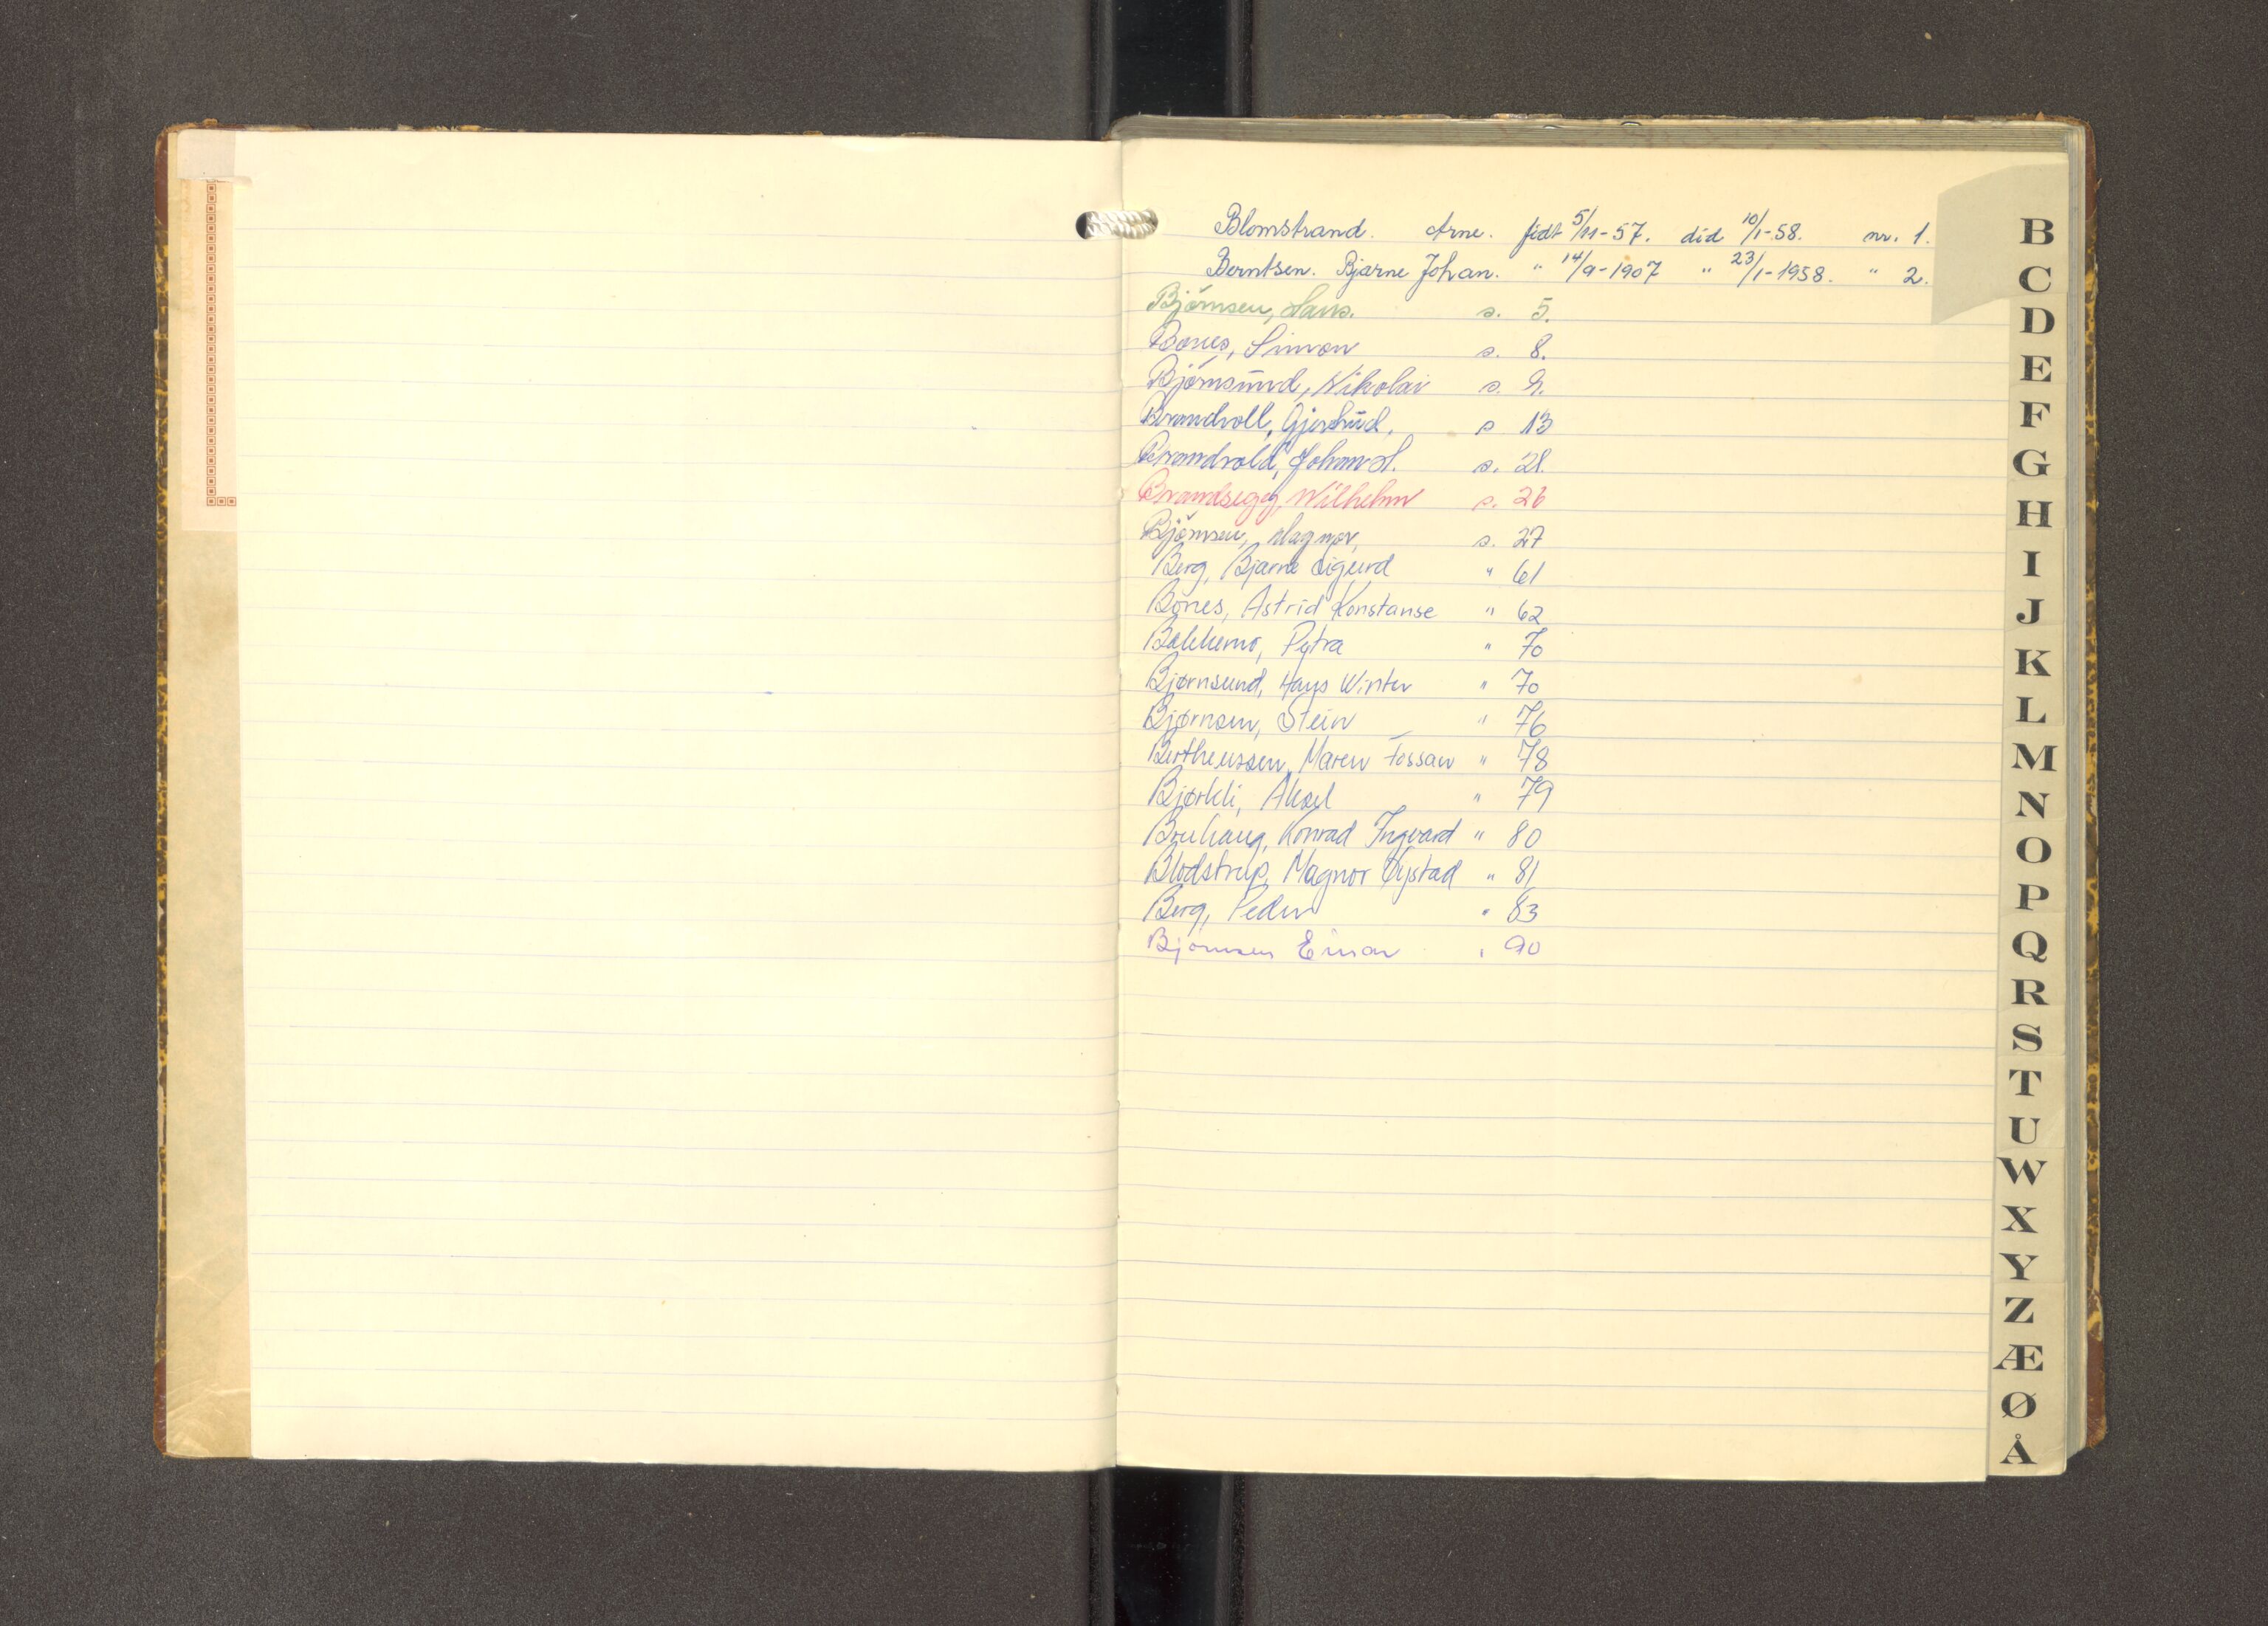 Blomstrand. Arne. født 5/11-57. død 10/1-58. nr. 1.
Berntsen. Bjarne Johan. " 14/9-1907 " 23/1-1958. " 2.
Björnsen, Hans. s. 5.
Bones, Simon s. 8.
Björnsund, Nikolai s. 9.
Brandvoll, Gjertrud. s 13
Brandvold, Johan H. s. 21.
Brandsegg, Wilhelm s. 26
Björnsen, Magnor, s. 27
Berg, Bjarne Sigurd " 61
Bones, Astrid Konstanse " 62
Bakkemo, Petra " 70
Bjørnsund, Hans Winter " 70
Bjørnsen, Stein " 76
Bertheussen, Maren Fossan " 78
Bjørkli, Aksel " 79
Bruhaug, Konrad Ingvard " 80
Blodstrup, Magnor Øystad " 81
Berg, Peder " 83
Bjørnsen Einar " 90
B
C
D
E
F
G
H
I
J
K
L
M
N
O
P
Q
R
S
T
U
W
X
Y
Z
Æ
Ø
Å